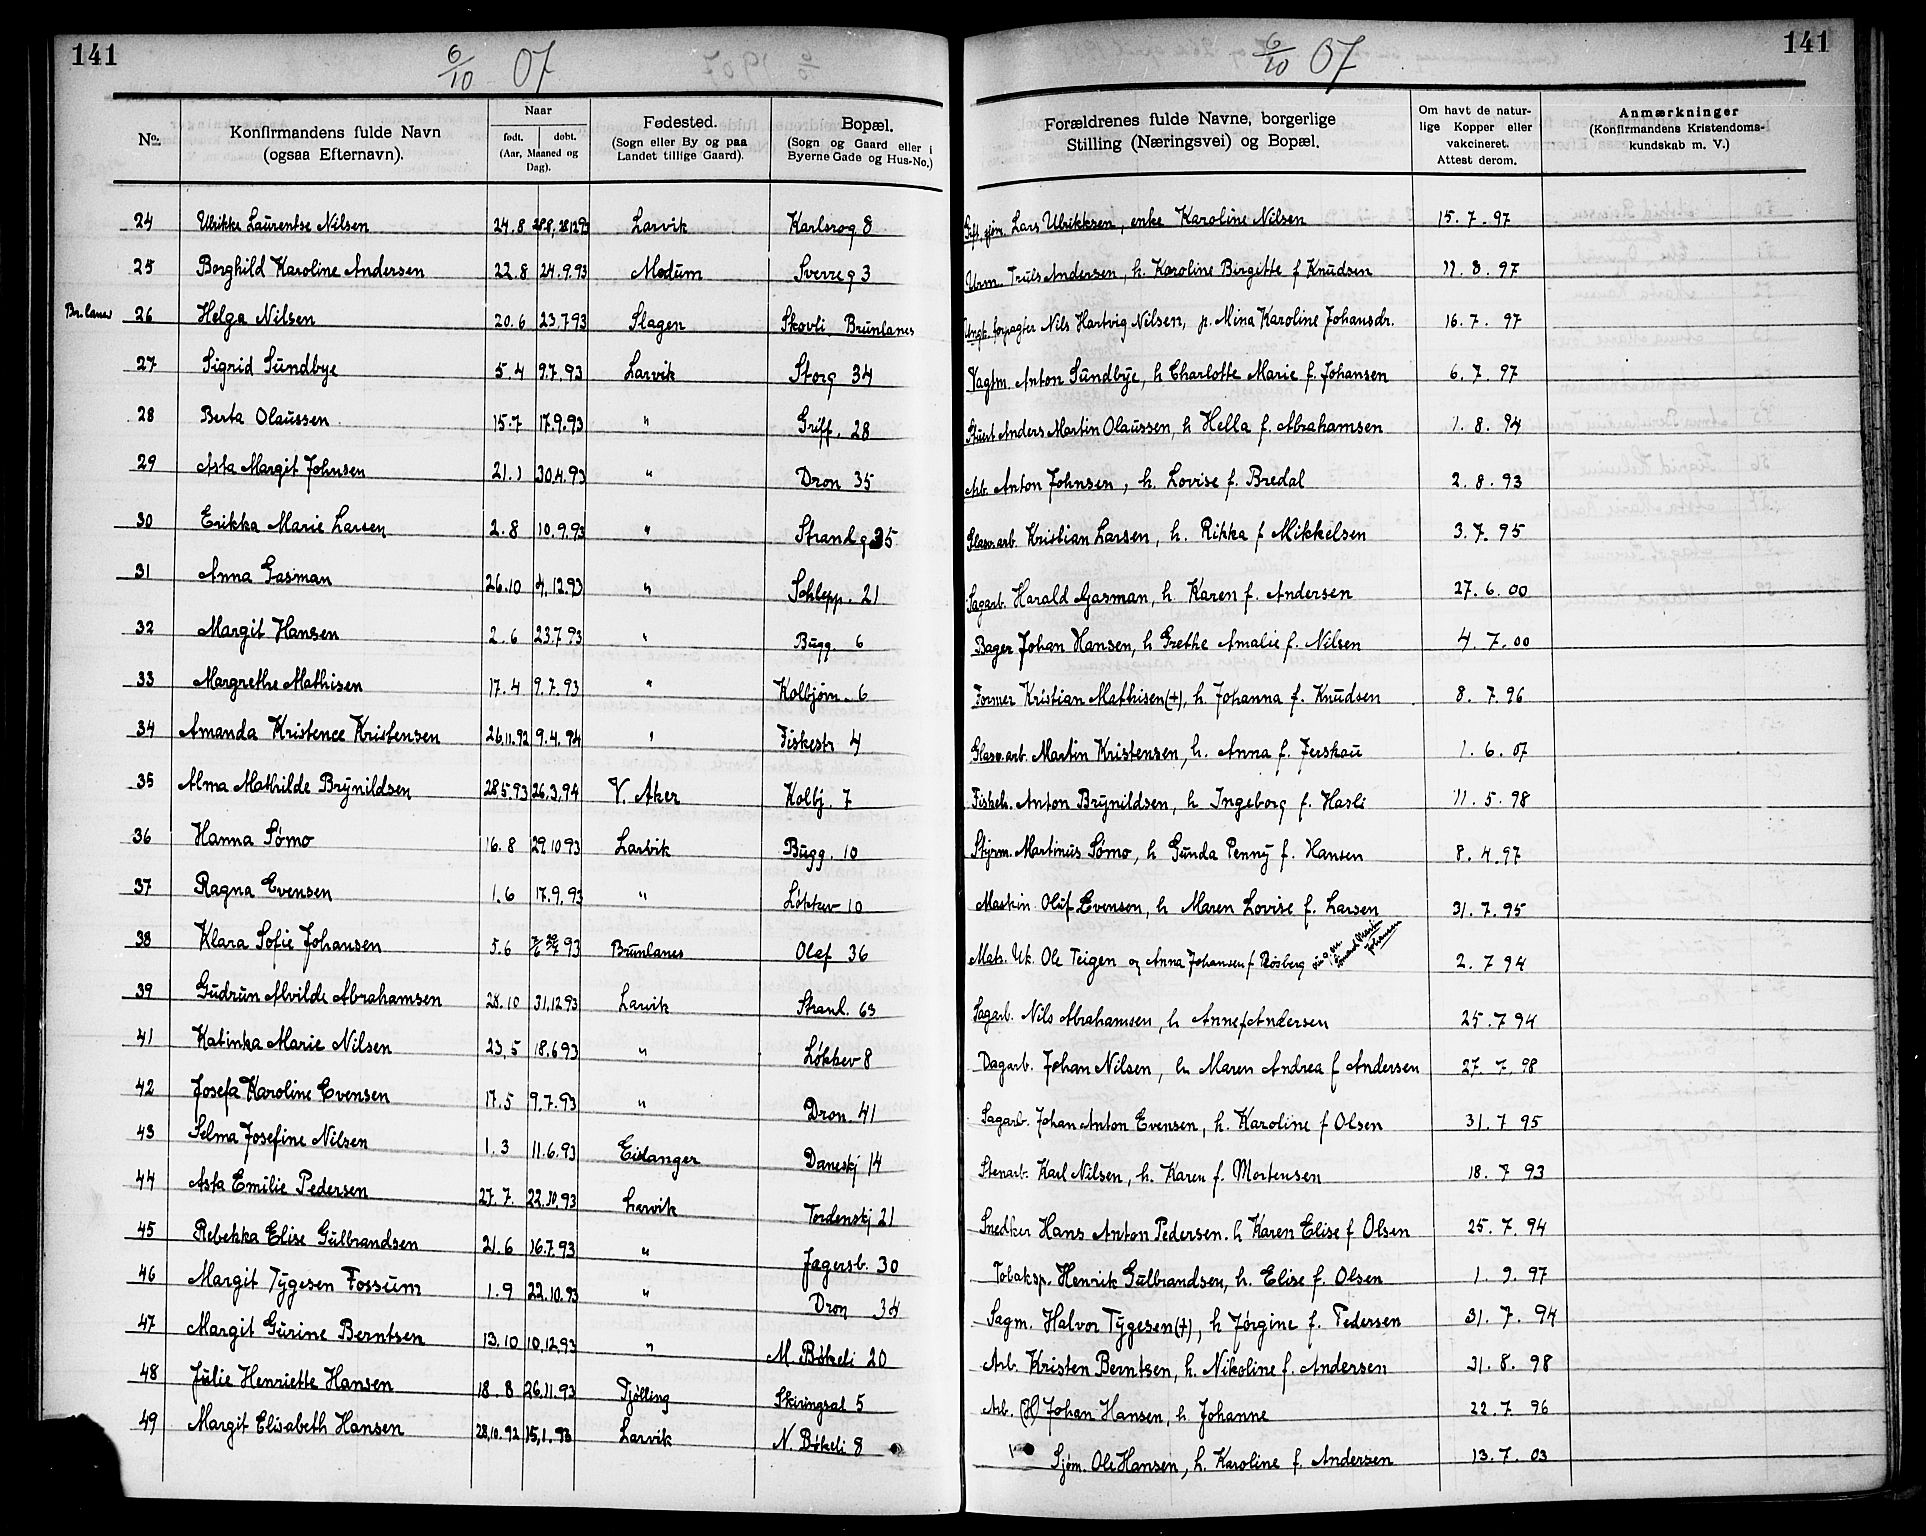 141
6/10 07
No.
Konfirmandens fulde Navn
(ogsaa Efternavn).
Naar
født. døbt.
(Aar, Maaned og
Dag).
Fødested.
(Sogn eller By og paa
Landet tillige Gaard).
Bopæl.
(Sogn og Gaard eller i
Byerne Gade og Hus-No.)
24 Ulrikke Laurentse Nilsen 24.8 Larvik Karlsrog 8
25 Borghild Karoline Andersen 22.8 24.9.93 Modum Sverreg 3
Br.lanes 26 Helga Nilsen 20.6 23.7.93 Slagen Skovli Brunlanes
27 Sigrid Sundbye 5.4 9.7.93 Larvik Storg 34
28 Berta Olaussen 15.7 17.9.93 " Griff. 28
29 Asta Margit Johnsen 21.1 30.4.93 " Dron 35
30 Erikka Marie Larsen 2.8 10.9.93 " Strandg 35
31 Anna Gasman 26.10 4.12.93 " Schlepp. 21
32 Margit Hansen 2.6 23.7.93 " Bugg. 6
33 Margrethe Mathisen 17.4 9.7.93 " Kolbjørn. 6
34 Amanda Kristence Kristensen 26.11.92 9.4.94 " Fiskestr 4
35 Alma Mathilde Brynildsen 28.5.93 26.3.94 V. Aker Kolbj. 7
36 Hanna Sømo 16.8 29.10.93 Larvik Bugg. 10
37 Ragna Evensen 1.6 17.9.93 " Løkkev 10
38 Klara Sofie Johansen 5.6 93 Brunlanes Olaf 36
39 Gudrun Alvilde Abrahamsen 28.10 31.12.93 Larvik Strand. 63
41 Katinka Marie Nilsen 23.5 18.6.93 " Løkkev 8
42 Josefa Karoline Evensen 17.5 9.7.93 " Dron. 41
43 Selma Josefine Nilsen 1.3 11.6.93 Eidanger Daneskj 14
44 Asta Emilie Pedersen 27.7. 22.10.93 Larvik Tordenskj 21
45 Rebekka Elise Gulbrandsen 21.6 16.7.93 " Jagersb. 30
46 Margit Tygesen Fossum 1.9 22.10.93 " Dron 34
47 Margit Gurine Berntsen 13.10 10.12.93 " M. Bøkeli 20
48 Julie Henriette Hansen 18.8 26.11.93 Tjølling Skiringsal 5
49 Margit Elisabeth Hansen 28.10.92 15.1.93 Larvik N. Bøkeli 8
141
6/10 07
Forældrenes fulde Navne, borgerlige
Stilling (Næringsvei) og Bopæl.
Om havt de natur-
lige Kopper eller
vakcineret.
Attest derom.
Anmærkninger
(Konfirmandens Kristendoms-
kundskab m. V.)
Lars Ulrikksen, enke Karoline Nilsen 15.7.97
Urm. Truls Andersen, h. Karoline Birgitte f Knudsen 11.8.97
Ungk. forpagter Nils Hartvig Nilsen, p. Mina Karoline Johansdr. 16.7.97
Vagtm. Anton Sundbye, h Charlotte Marie f. Johansen 6.7.97
Stuert Anders Martin Olaussen, h Hella f. Abrahamsen 1.8.94
Arb. Anton Johnsen, h. Lovise f. Bredal 2.8.93
Glasv.arb. Kristian Larsen, h. Rikka f Mikkelsen 3.7.95
Sagarb. Harald Gasman, h Karen f. Andersen 27.6.00
Bager Johan Hansen, h Grethe Amalie f. Nilsen 4.7.00
Former Kristian Mathisen (+), h. Johanna f. Knudsen 8.7.96
Glasv.arb. Martin Kristensen, h. Anna f. Ferskau 1.6.07
Fiskeh. Anton Brynildsen, h Ingeborg f. Hasli 11.5.98
Styrm. Martinus Sømo, h Gunda Penny f. Hansen 8.4.97
Maskin Oluf Evensen, h Maren Lovise f. Larsen 31.7.95
Mats. Uk. Ole Teigen og Anna Johansen f Røsberg Johansen 2.7.94
Sagarb. Nils Abrahamsen, h Anne f Andersen 25.7.94
Dagarb. Johan Nilsen, h Maren Andrea f Andersen 27.7.98
Sagarb. Johan Anton Evensen, h. Karoline f Olsen 31.7.95
Stenarb. Karl Nilsen, h. Karen f. Mortensen 18.7.93
Snedker Hans Anton Pedersen. h Karen Elise f Olsen 25.7.94
Tobaksp. Henrik Gulbrandsen, h. Elise f. Olsen 1.9.97
Sagm. Halvor Tygesen (+), h Jørgine f. Pedersen 31.7.94
Arb. Kristen Berntsen, h. Nikoline f. Andersen 31.8.98
Arb. (H) Johan Hansen, h. Johanne 22.7.96
Sjøm. Ole Hansen, h. Karoline f. Andersen 13.7.03